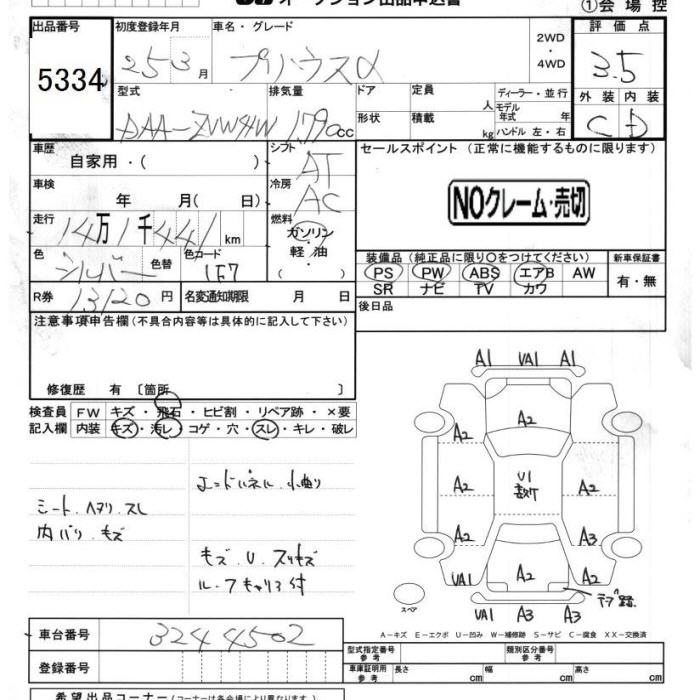 オークション出品申込書
①会場控
出品番号
5334
初度登録年月
25 3 月
車名・グレード
プリウスα
2WD
・
4WD
評価点
3.5
外装 内装
C D
型式
DAA-ZVW41W
排気量
1790cc
ドア
定員
人
ディーラー・並行
モデル
年式 年
形状
積載
kg
ハンドル 左・右
車歴
自家用・( )
シフト
AT
車検
年 月( 日)
冷房
AC
走行
14万1千441km
燃料
ガソリン
・
軽油
( )
色
シルバー
色替
色コード
1F7
R券
13120円
名変通知期限 月 日
セールスポイント (正常に機能するものに限ります)
NOクレーム・売切
装備品 (純正品に限り○をつけてください)
新車保証書
PS PW ABS エアB AW
SR ナビ TV カワ
有・無
後日品
注意事項申告欄 (不具合内容等は具体的に記入して下さい)
修復歴 有 〔箇所 〕
検査員 FW キズ・飛石・ヒビ割・リペア跡・×要
記入欄 内装 キズ・汚レ・コゲ・穴・スレ・キレ・破レ
エンドパネル小曲り
シート、ヘタリ、スレ
内バリ、キズ
キズ、U、スリキズ
ルーフキャリア付
A1 VA1 A1
A2
A2
A2 U1 A2
A2 A3
VA1 A2 A2
スペア
テープ跡
VA1 A3 A3
A-キズ E-エクボ U-凹み W-補修跡 S-サビ C-腐食 XX-交換済
車台番号
3244502
登録番号
型式指定番号
参考
類別区分番号
参考
車庫証明用
参考
長さ cm
幅 cm
高さ cm
希望出品コーナー (コーナーは各会場により異なります)